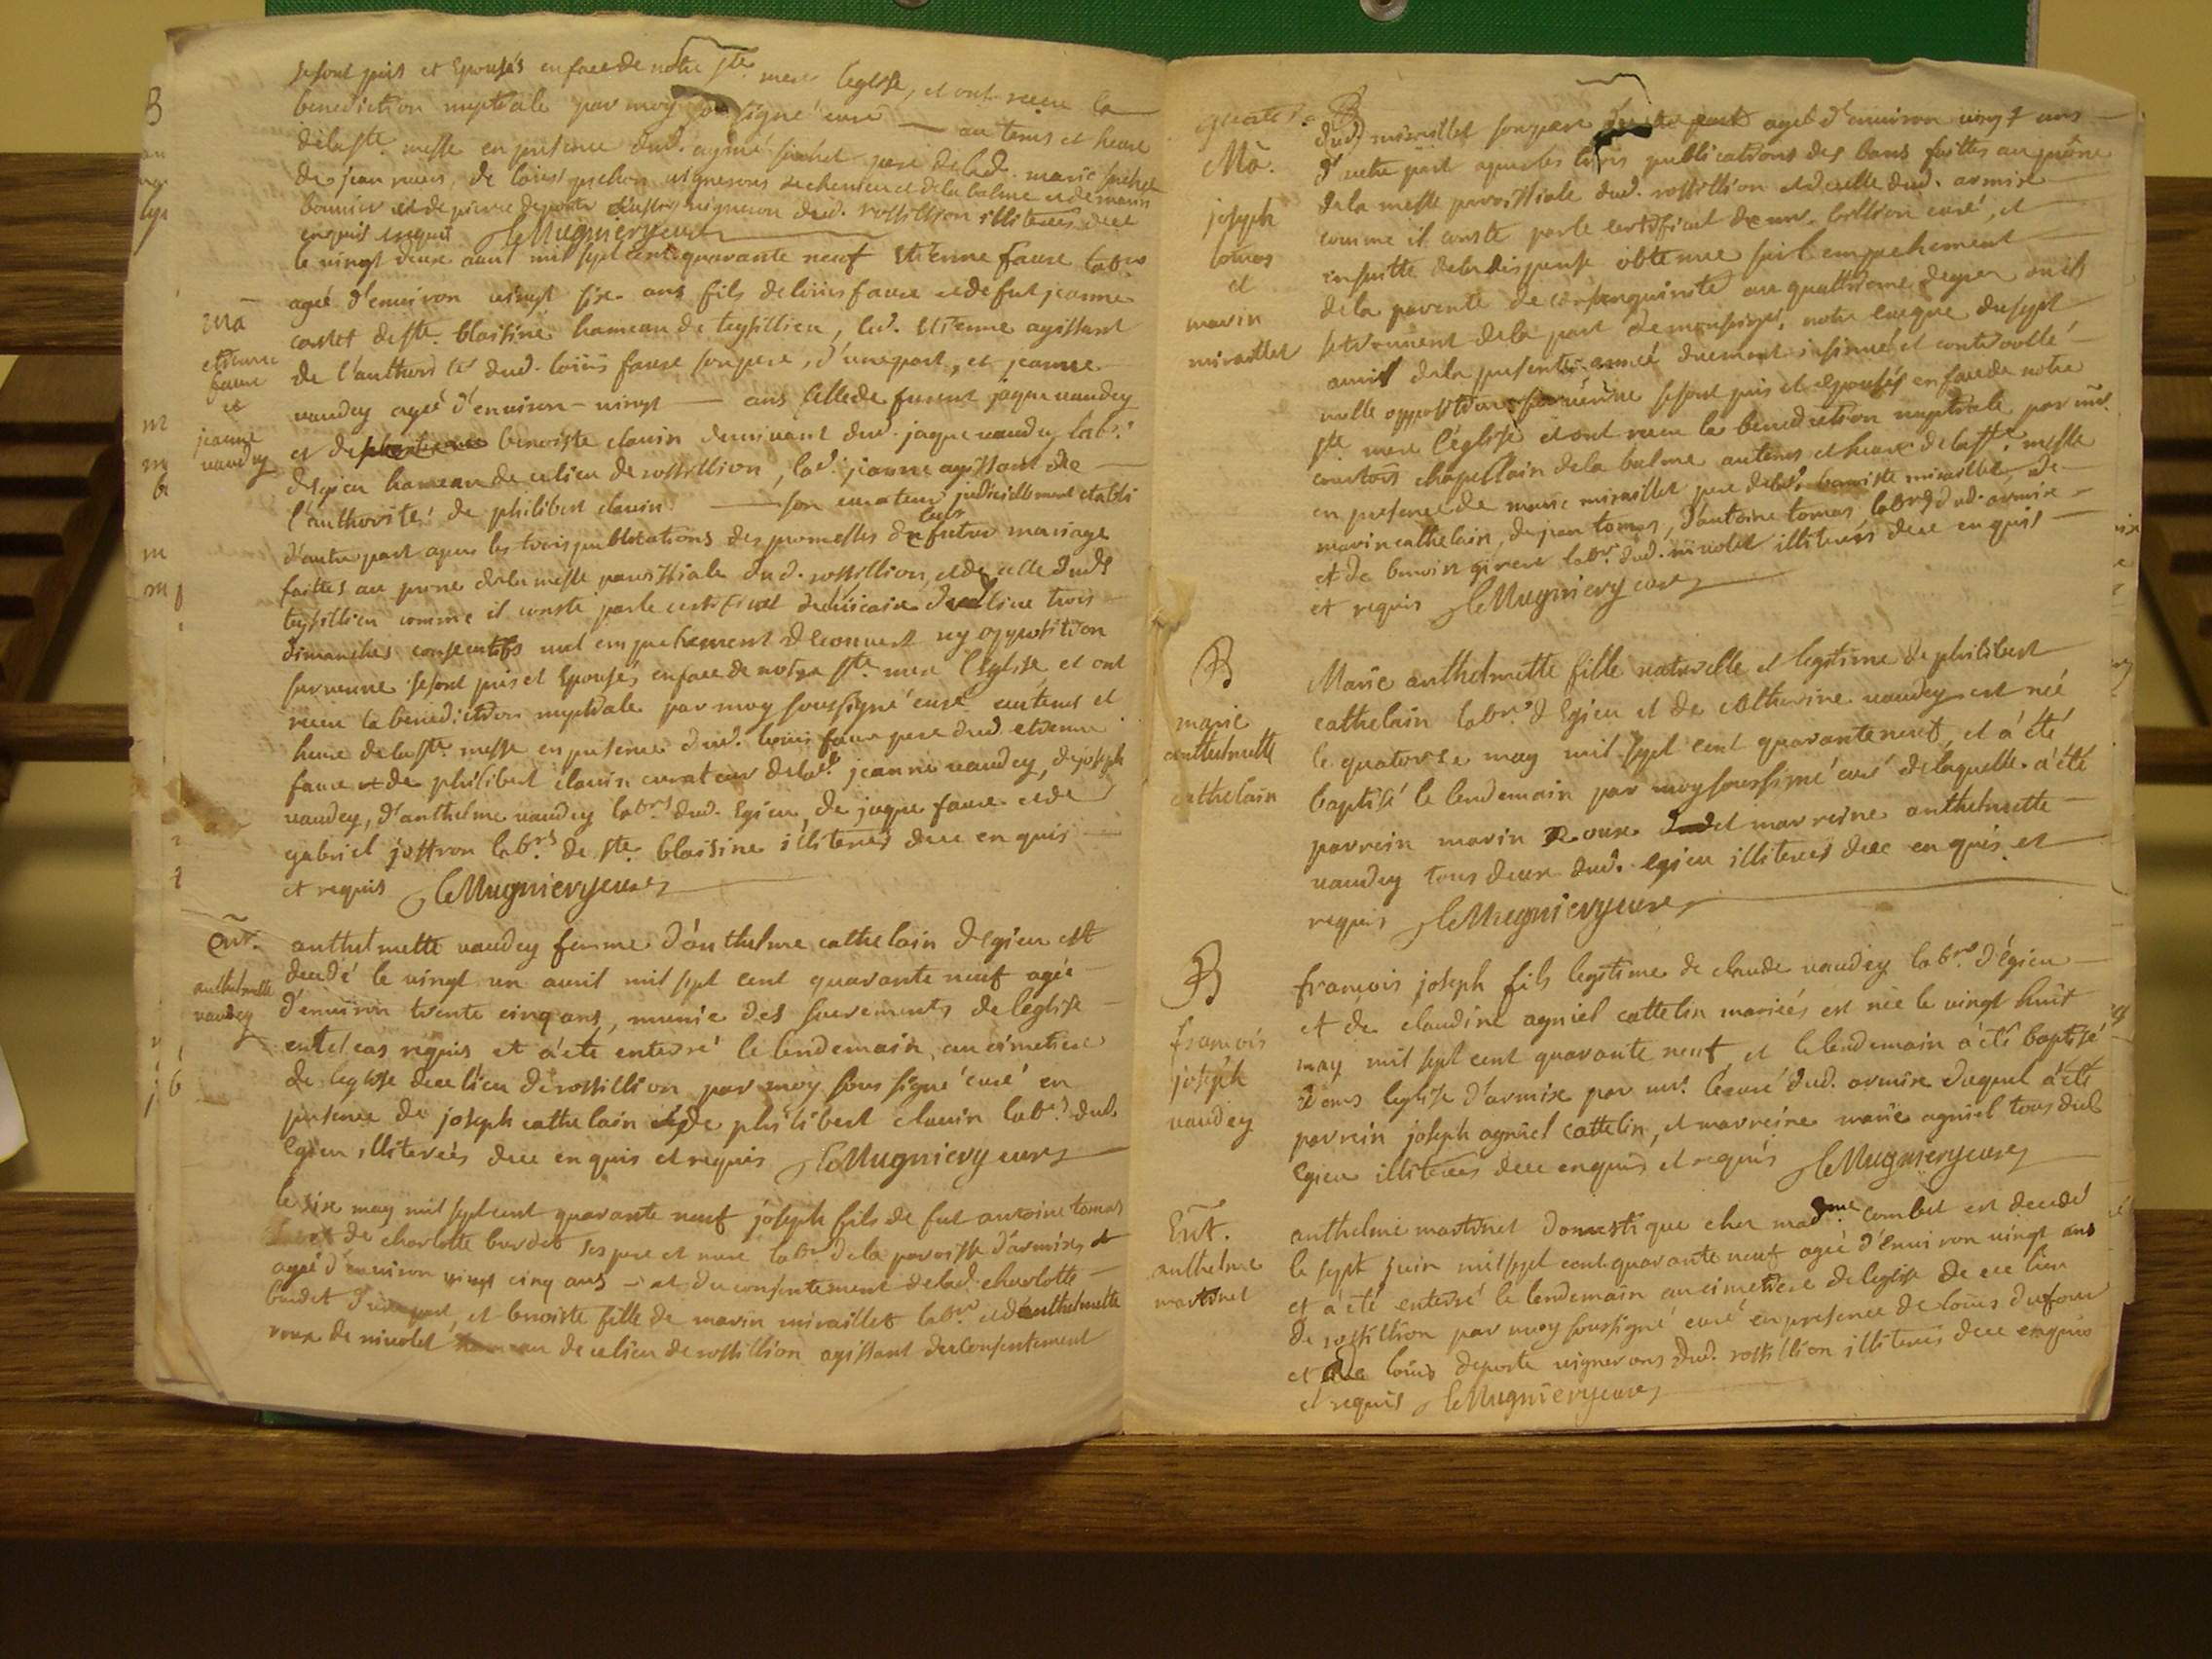 se sont pris et Epousés en face de notre ste mere leglise, et ont receu la
benediction nuptiale par moy soussigné curé — au tems et heure
dela ste messe en presence dud. aymé pere delad. marie
de jean de louis pichon vignerons de chemieu et dela balme et de marin
bonnier et de pierre deporte vigneron dud. rossillion illiterés de ce
enquis requis leMugnier curé
le vingt deux avril mil sept cent quarante neuf Etienne faure labr
agé d'environ vingt six ans fils de loüis faure et de fut jeanne
de ste blaisine hameau de teysillieu, led. Etienne agissant
de l'authorité dud. loüis faure son pere, d'une part, et jeanne
vaudey agéé d'environ - vingt — ans fille de jaque vaudey
et de benoiste clavin dud. jaque vaudey labr.
d'Egieu hameau de ce lieu de rossillion, lad. jeanne agissant de —
l'authorité de philibert clavin — son curateur judiciellement etabli
d'autre part apres les trois publications des promesses de leur futur mariage
faittes au prone dela messe paroissiale dud. rossillion, et de celle dud.
teysillieu comme il conste par le certificat du vicaire dud. lieu trois
dimanches consecutifs nul empechement decouvert ny opposition
survenue se sont pris et Epousés en face de notre ste mere l'Eglise et ont
receu la benediction nuptiale par moy soussigné curé au tems et
heure dela ste messe en presence dud. loüis faure pere dud. etienne
faure et de philibert clavin curateur delad. jeanne vaudey, de joseph
vaudey, d'anthelme vaudey labrs dud. Egieu, de jaque faure et de
gabriel jostron labrs de ste blaisine illiterés de ce enquis —
et requis leMugnier curé
Ma
etienne
faure
et
jeanne
vaudey
Ent.
anthelmette
vaudey
anthelmette vaudey femme d'anthelme cathelain d'Egieu est
decedé le vingt un avril mil sept cent quarante neuf agée —
d'environ trente cinq ans, munie des sacrements de leglise —
en tel cas requis et a été enterré le lendemain au cimetiere
de leglise de ce lieu de rossillion par moy soussigné curé en
presence de joseph cathelain et de philibert clavin labrs dud.
Egieu illiterées de ce enquis et requis leMugnier curé
le six may mil sept cent quarante neuf joseph fils de fut antoine tomas
et de charlotte burdet ses pere et mere labr dela paroisse d'armix
agé d'environ vingt cinq ans - et du consentement delad. charlotte —
burdet d'une part, et benoiste fille de marin miraillet labr et d'anthelmette
roux de nivolet hameau de ce lieu de rossillion agissant du consentement
dud. miraillet son pere agéé d'environ vingt ans —
d'autre part apres les trois publications des bans faittes au prône
dela messe paroissiale dud. rossillion et de celle dud. armix
comme il conste par le certificat de mr. curé, et
ensuitte dela dispense obtenue sur l'empechement —
dela parenté de consanguinité au quattrieme degré ou ils
se trouvent dela part de monseigr. notre Eveque du sept —
avril dela presente année duement insinué et controollé —
nulle opposition survenüe se sont pris et epousés en face de notre
ste mere l'église et ont receu la benediction nuptiale par mr.
courtois chapellain dela balme au tems et heure dela ste messe
en presence de marin miraillet pere delad. benoiste miraillet de —
marin cathelain, de jean tomas, d'antoine tomas labrs dud. armix —
et de benoin labr. dud. nivolet illiterés de ce enquis —
et requis leMugnier curé
Ma.
joseph
tomas
et
marin
miraillet
B
marie
anthelmette
cathelain
Marie anthelmette fille naturelle et legitime de philibert
cathelain labr. d'Egieu et de Catherine vaudey est née
le quatorze may mil sept cent quarante neuf, et a été
baptisé le lendemain par moy soussigné curé de laquelle a été
parrein marin Roux et marreine anthelmette —
vaudey tous deux dud. egieu illiterés de ce enquis et
requis leMugnier curé
B
francois
joseph
vaudey
francois joseph fils legitime de claude vaudey labr. d'égieu —
et de claudine agniel cattelin mariéés est née le vingt huit
may mil sept cent quarante neuf, et le lendemain a été baptisé
dans leglise d'armix par mr. le curé dud. armix duquel a été
parrein joseph agniel cattelin, et marreine marie agniel tous dud.
Egieu illiterés de ce enquis et requis leMugnier curé
Ent.
anthelme
martinet
anthelme martinet domestique chez madme combet est decedé
le sept juin mil sept cent quarante neuf agéé d'environ vingt ans
et a été enterré le lendemain au cimetiere de leglise de ce lieu
de rossillion par moy soussigné curé en presence de loüis dufour
et de loüis deporte vignerons dud. rossillion illiterés de ce enquis
et requis leMugnier curé